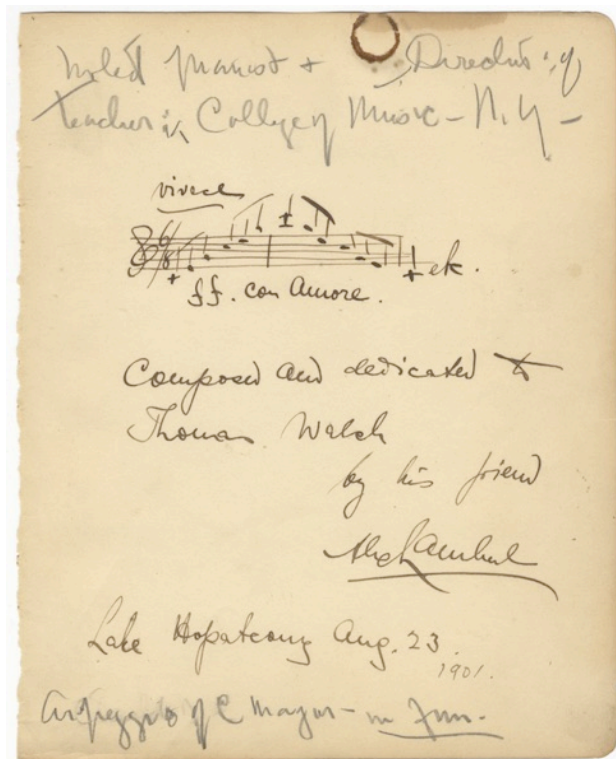 Noted pianist + Director of
teacher in College of Music - N.Y -
vivace
6/8
ff. con Amore.
etc.
Composed and dedicated to
Thomas Walsh
by his friend
Alex Lambert
Lake Hopatcong Aug. 23.
1901.
Arpeggio of C major - in fun.